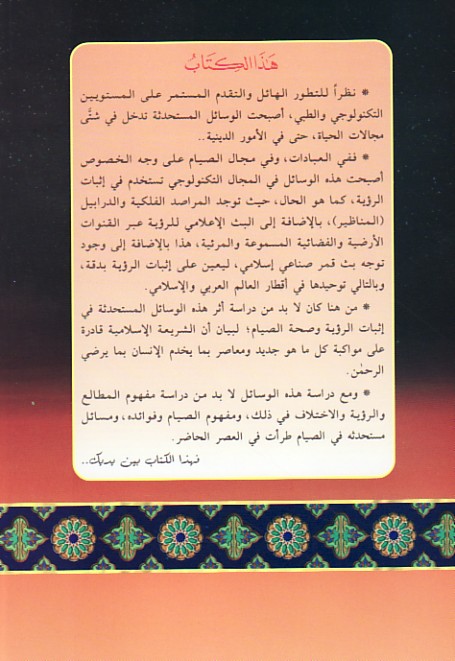 هَذَا الكِتَابُ
* نظراً للتطور الهائل والتقدم المستمر على المستويين
التكنولوجي والطبي، أصبحت الوسائل المستحدثة تدخل في شتَّى
مجالات الحياة، حتى في الأمور الدينية..
* ففي العبادات، وفي مجال الصيام على وجه الخصوص
أصبحت هذه الوسائل في المجال التكنولوجي تستخدم في إثبات
الرؤية، كما هو الحال، حيث توجد المراصد الفلكية والدرابيل
(المناظير)، بالإضافة إلى البث الإعلامي للرؤية عبر القنوات
الأرضية والفضائية المسموعة والمرئية، هذا بالإضافة إلى وجود
توجه بث قمر صناعي إسلامي، ليعين على إثبات الرؤية بدقة،
وبالتالي توحيدها في أقطار العالم العربي والإسلامي.
* من هنا كان لا بد من دراسة أثر هذه الوسائل المستحدثة في
إثبات الرؤية وصحة الصيام؛ لبيان أن الشريعة الإسلامية قادرة
على مواكبة كل ما هو جديد ومعاصر بما يخدم الإنسان بما يرضي
الرحمٰن.
* ومع دراسة هذه الوسائل لا بد من دراسة مفهوم المطالع
والرؤية والاختلاف في ذلك، ومفهوم الصيام وفوائده، ومسائل
مستحدثه في الصيام طرأت في العصر الحاضر.
فهذا الكتاب بين يديك..